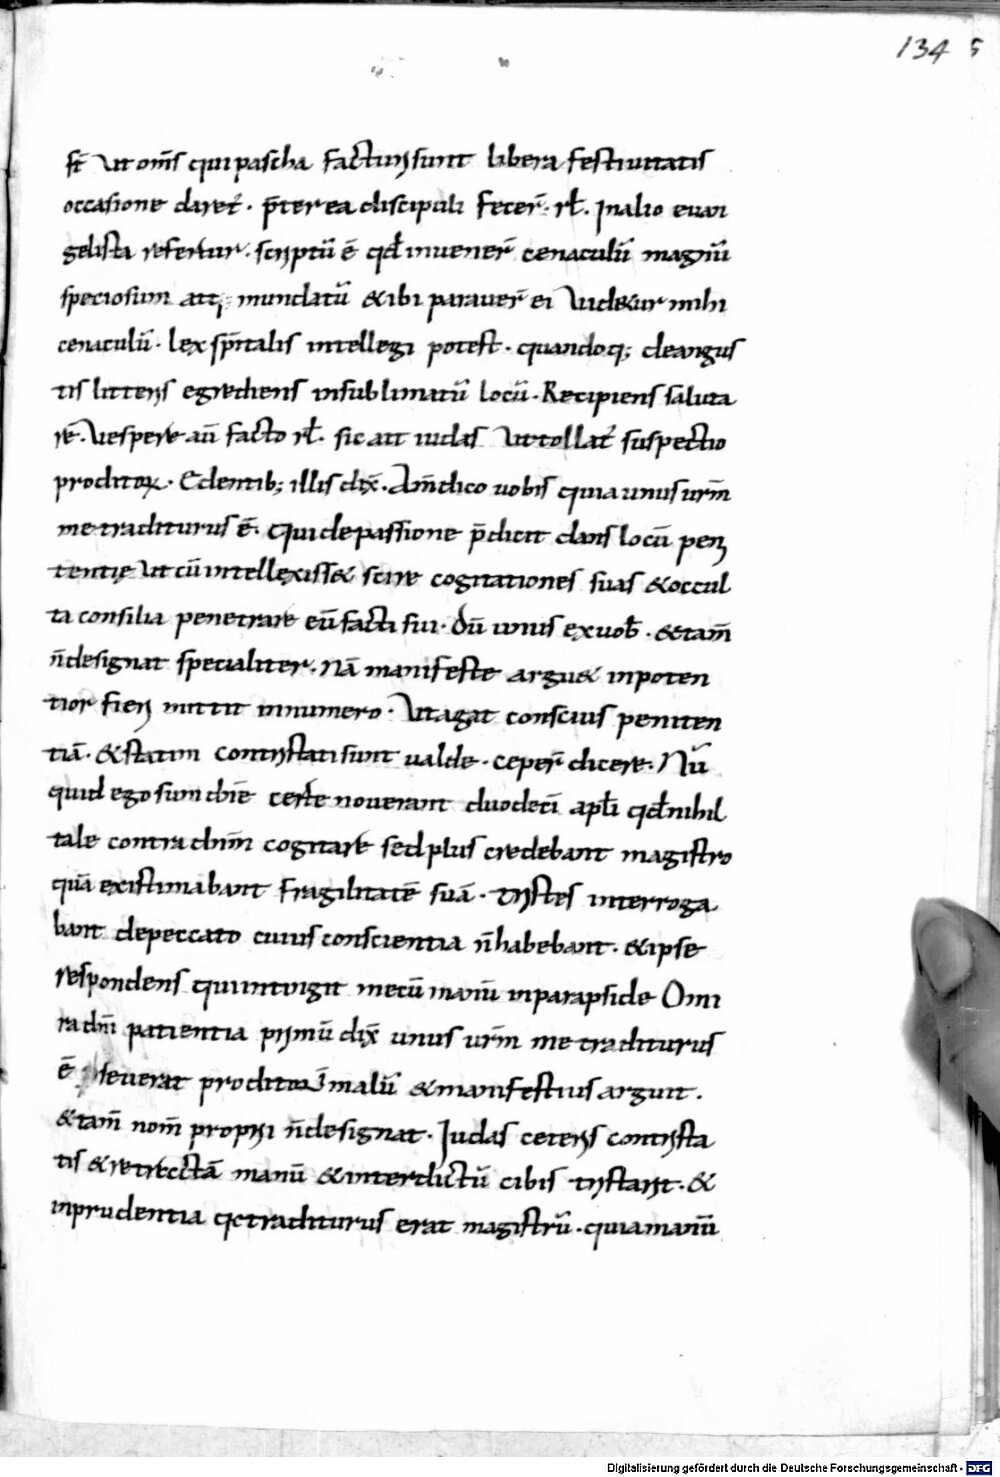 134 5
st̄ ut om̄s qui pascha facturi sunt libera festiuitatis
occasione daret̄. p̄terea discipuli fecer̄. rł. In alio euan
gelista refertur. scriptū ē qđ inuener̄ cenaculū magnū
speciosum atq; mundatū & ibi parauer̄ ei Uidetur mihi
cenaculū. lex sp̄italis intellegi potest. quandoq; de angus
tis litteris egrediens in sublimatū locū. Recipiens saluta
rē. Uespere aū facto rł. sic ait iudas Ut tollat̄ suspectio
proditor. Edentib; illis dix̄. Am̄ dico uobis quia unus urm̄
me traditurus ē. Qui de passione p̄dicit dans locū peni
tentię Ut cū intellexiss& scire cogitationes suas & occul
ta consilia penetrare eū facti sui. Dū unus ex uob̄. & tam̄
n̄ designat specialiter. Nā manifeste argu& inpoten
tior fieri mittit in numero. Ut agat conscius peniten
tiā. & statim contristati sunt ualde. ceper̄ dicere. Nū
quid ego sum dn̄e certe nouerant duodeci apłi qđ nihil
tale contra dnm̄ cogitare sed plus credebant magistro
quā existimabant fragilitatē suā. tristes interroga
bant de peccato cuius conscientia n̄ habebant. & ipse
respondens qui intingit mecū manū in parapside O mi
ra dn̄i patientia primū dix̄ unus urm̄ me traditurus
ē pseuerat proditor ī malū & manifestius arguit.
& tam̄ nom̄ proprii n̄ designat. Judas ceteris contrista
tis & retrectā manū & interdictū cibis tristari. &
inprudentia q traditurus erat magistrū. quia manū
Digitalisierung gefördert durch die Deutsche Forschungsgemeinschaft - DFG